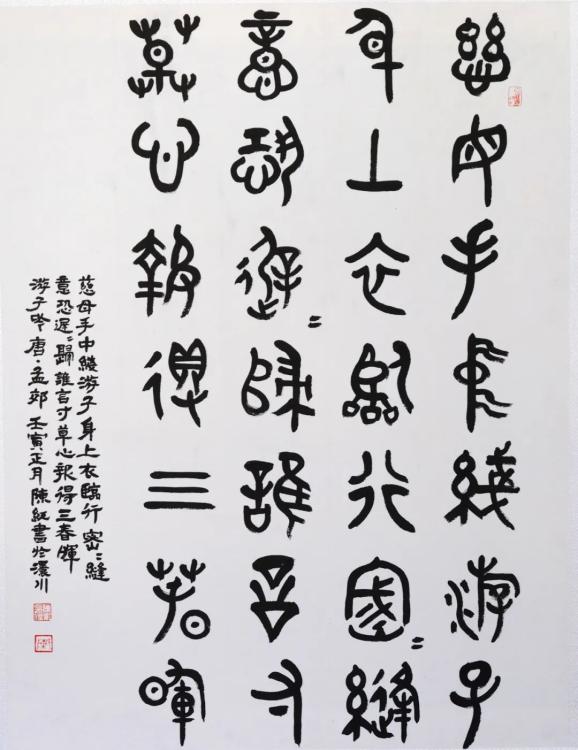 慈母手中綫游子
身上衣臨行密〻縫
意恐遲〻歸誰言寸
草心報得三春暉
慈母手中綫游子身上衣臨行密〻縫
意恐遲〻歸誰言寸草心報得三春暉
游子吟唐·孟郊壬寅正月陳紅書於澴川